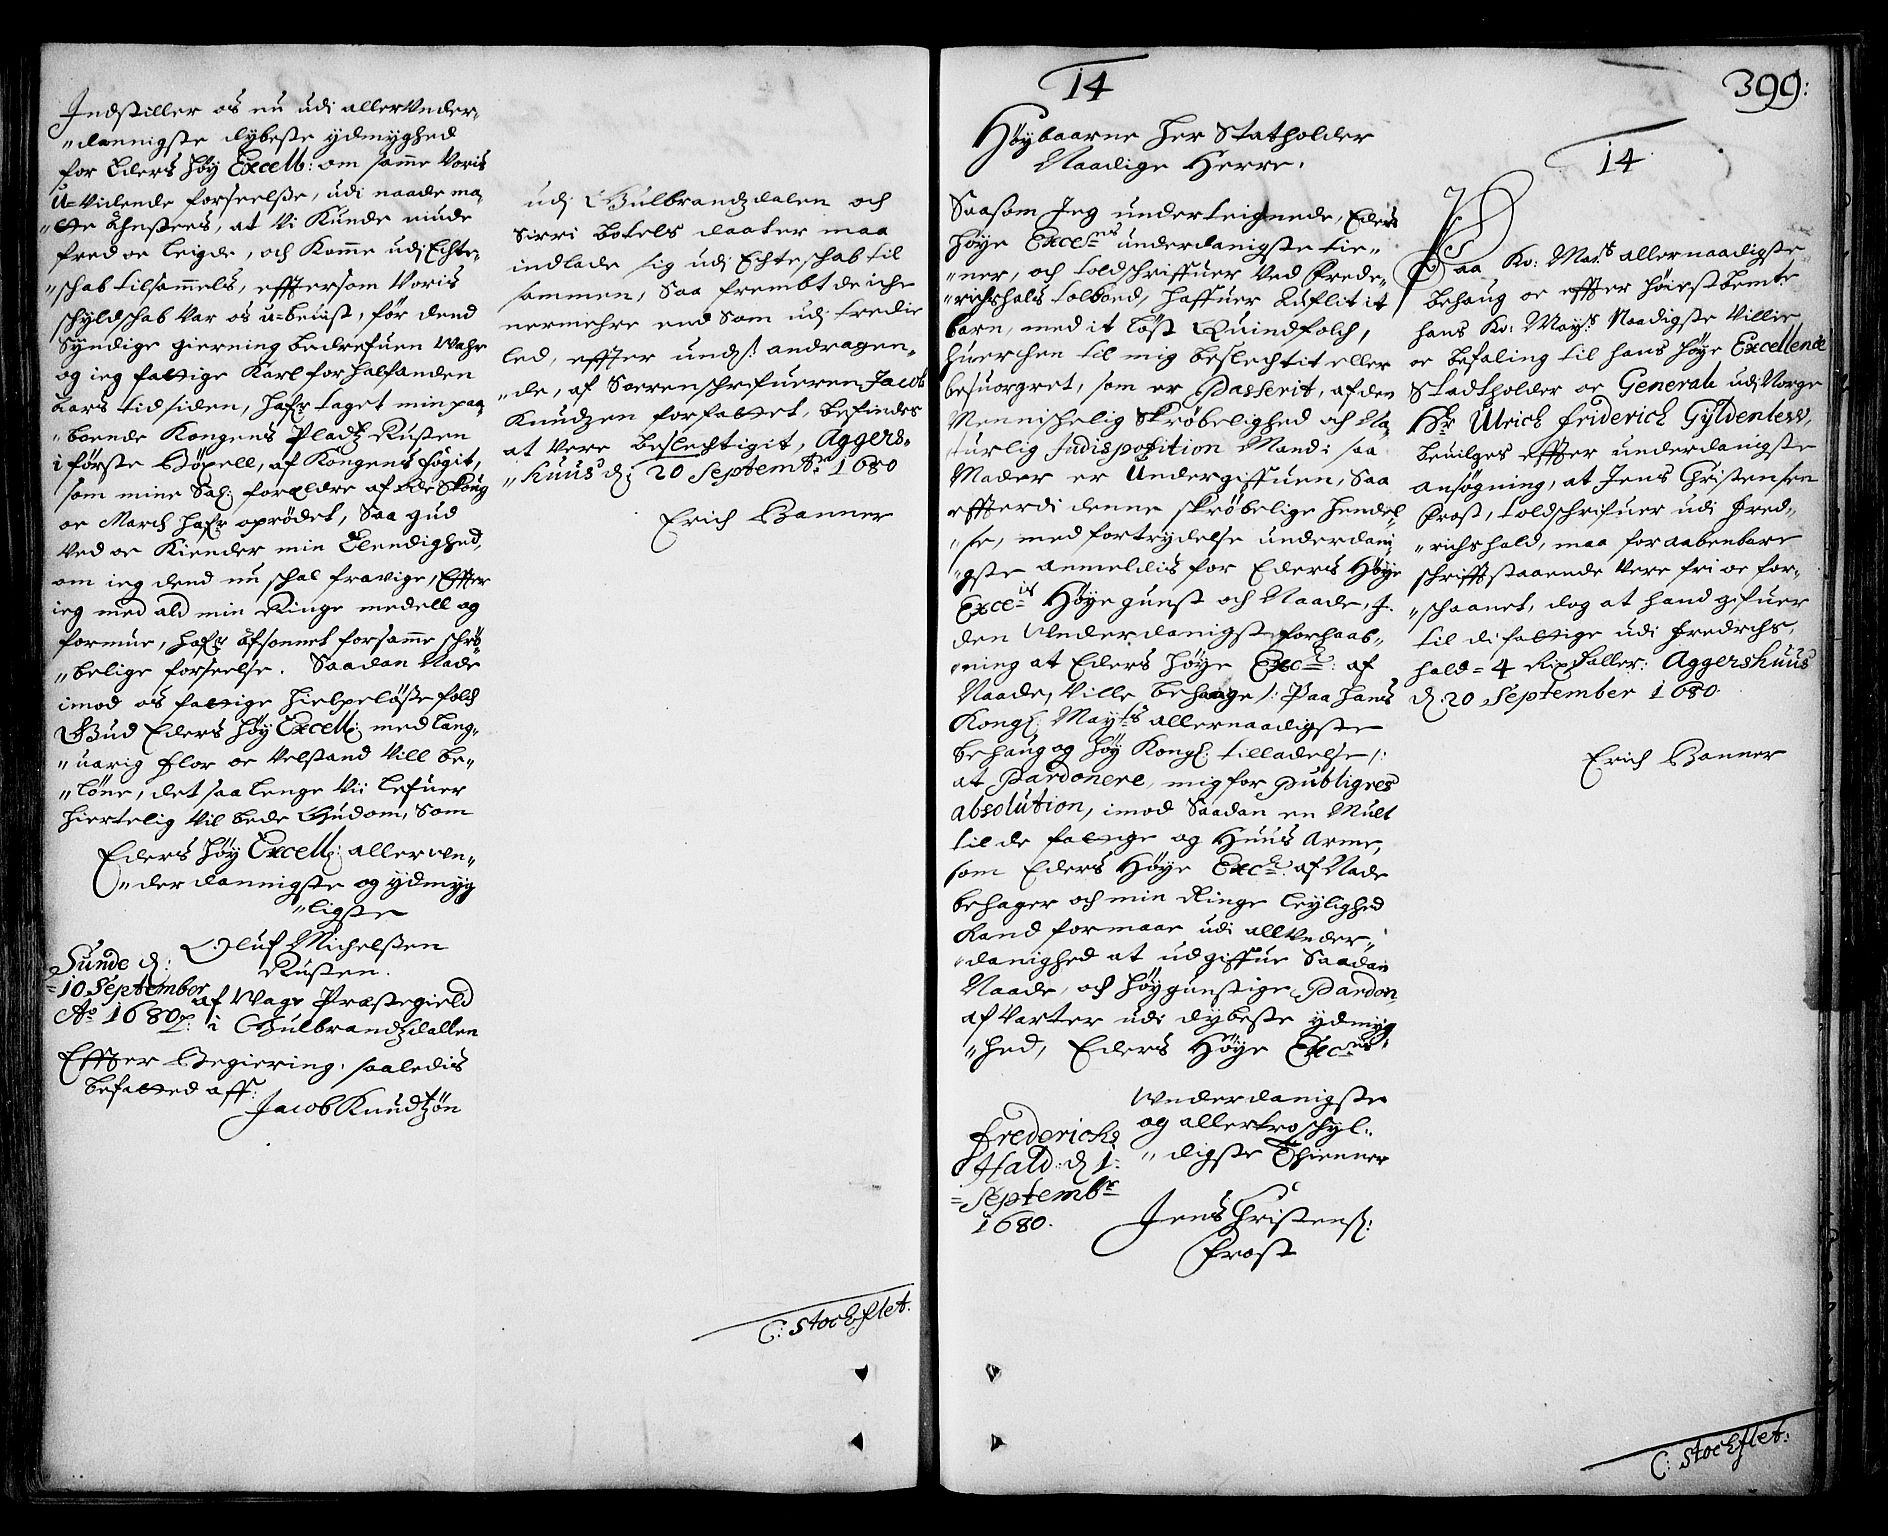 Indstiller os nu udi allerunder,
"dannigste dybeste ydmyghed
for Eders Høy Excell: om samme Voris
U=Vidende forseelsse, udi naade ma,
"tte Ansees, at Vi Kunde niude
fred oc leigde, och Komme udj Echte,
"schab tilsammels, efftersom Voris
schyldschab Var os u=beuist, før dend
Syndige gierning bedrefuen Wahr
og ieg fattige Karl for halfanden
Aars tid siden, hafr taget min paa,
"boende Kongens Pladtz Rusten
i første Böxell, af Kongens fogit,
som mine Sal: forældre af øde Skoug
oc March hafr oprødet, Saa gud
Ved oc Kiender min Elendighed,
om ieg dend nu schal fravige, Effter
ieg med ald min Ringe medell og
formue, hafr afsonnet for samme schrø,
"belige forseelse. Saadan Nade
imod os fattige hielpeløsse folch
Gud Eders Høy Excell: med lang,
"uarig flor oc Velstand Vill be,
"løne, det saa lenge Vii lefuer
hiertelig Vil bede Gud om, Som
Eders høy Excell: allerun,
"derdannigste og ydmyg
"ligste
Sunde d: Oluf Michelssen
10 September Rusten.
Ao 1680 af Wage Præstegield
i Gulbrandtzdallen
Effter Begiering, saaledis
befatted aff.
Jacob Knudtzøn
udj Gulbrandzdalen och
Sirri botels daater maa
indlade sig udj Echteschab til
sammen, Saa frembt de iche
nermehre end Som udj tredie
led, effter undschr: andragen,
"de, af Sorrenschrifueren Jacob
Knudzen forfattet, befindes
at Vere beslechtigit, Aggers,
"huus d: 20 Septembr 1680
Erich Banner
C: Stockflet.
399:
14
Høybaarne Her Statholder
Naadige Herre.
Saasom Jeg underteignede, Eders
høye Excels underdanigste tie,
"ner, och toldschriffuer Ved Frede,
"richshals tolboed, haffuer Auflit it
barn, med it løst Quindfolch,
huerchen til mig beslechtit eller
besuorgret, som er Passerit, af den
Mennischelig Skrøbelighed och Na,
turlig Indisposition Mand i saa
Mader er Undergiffuen, Saa
efferdi denne skrøbelige hendel,
"se, med fortrydelse underdani,
"gste anmeldis for Eders Høye
Exce: Høye gunst och Naade, J.
den Underdanigste forhaab,
"ning at Eders høye Exc: af
Naade, Ville behaage /: Paa hans
Kongl: Mayts allernaadigste
behaug og høy Kongl: tilladelse /:
at Pardonere, mig for publigves
absolution, imod Saadan en Mult
til de fattige og Huus Arme,
som Eders Høye Exc: af Nade
behager och min Ringe leylighed
Kand formaar udi allunder,
"danighed at udgiffue Saadan
Naade, och høygunstige Pardon,
afVarter udi dybeste ydmyg,
"hed, Eders Høye Exc:
Underdanigste
og allertroschyl,
"digste Thienner
Frederichs
Hald: d 1:
Septembr
1680.
Jens Christens:
Frost
14
Paa Ko: Mats allernaadigste
behaug oc effter høistbemte
hans Ko: Mayts Naadigste Villie
oc befaling til hans høye Excellence
Stadtholder oc General udj Norge
Hr Ulrich Friderich Gyldenlew,
beuilges effter underdanigste
ansøgning, at Jens Christensen
Frost, toldschrifuer udi Fred,
"richshald, maa for aabenbare
schrifftstaaende Vere fri oc for,
"schaanet, dog at hand gifuer
til di fattige udi Fredrchs,
hald = 4 Rixdaller: Aggershuus
d. 20 September 1680.
Erich Banner
C: Stockflet: